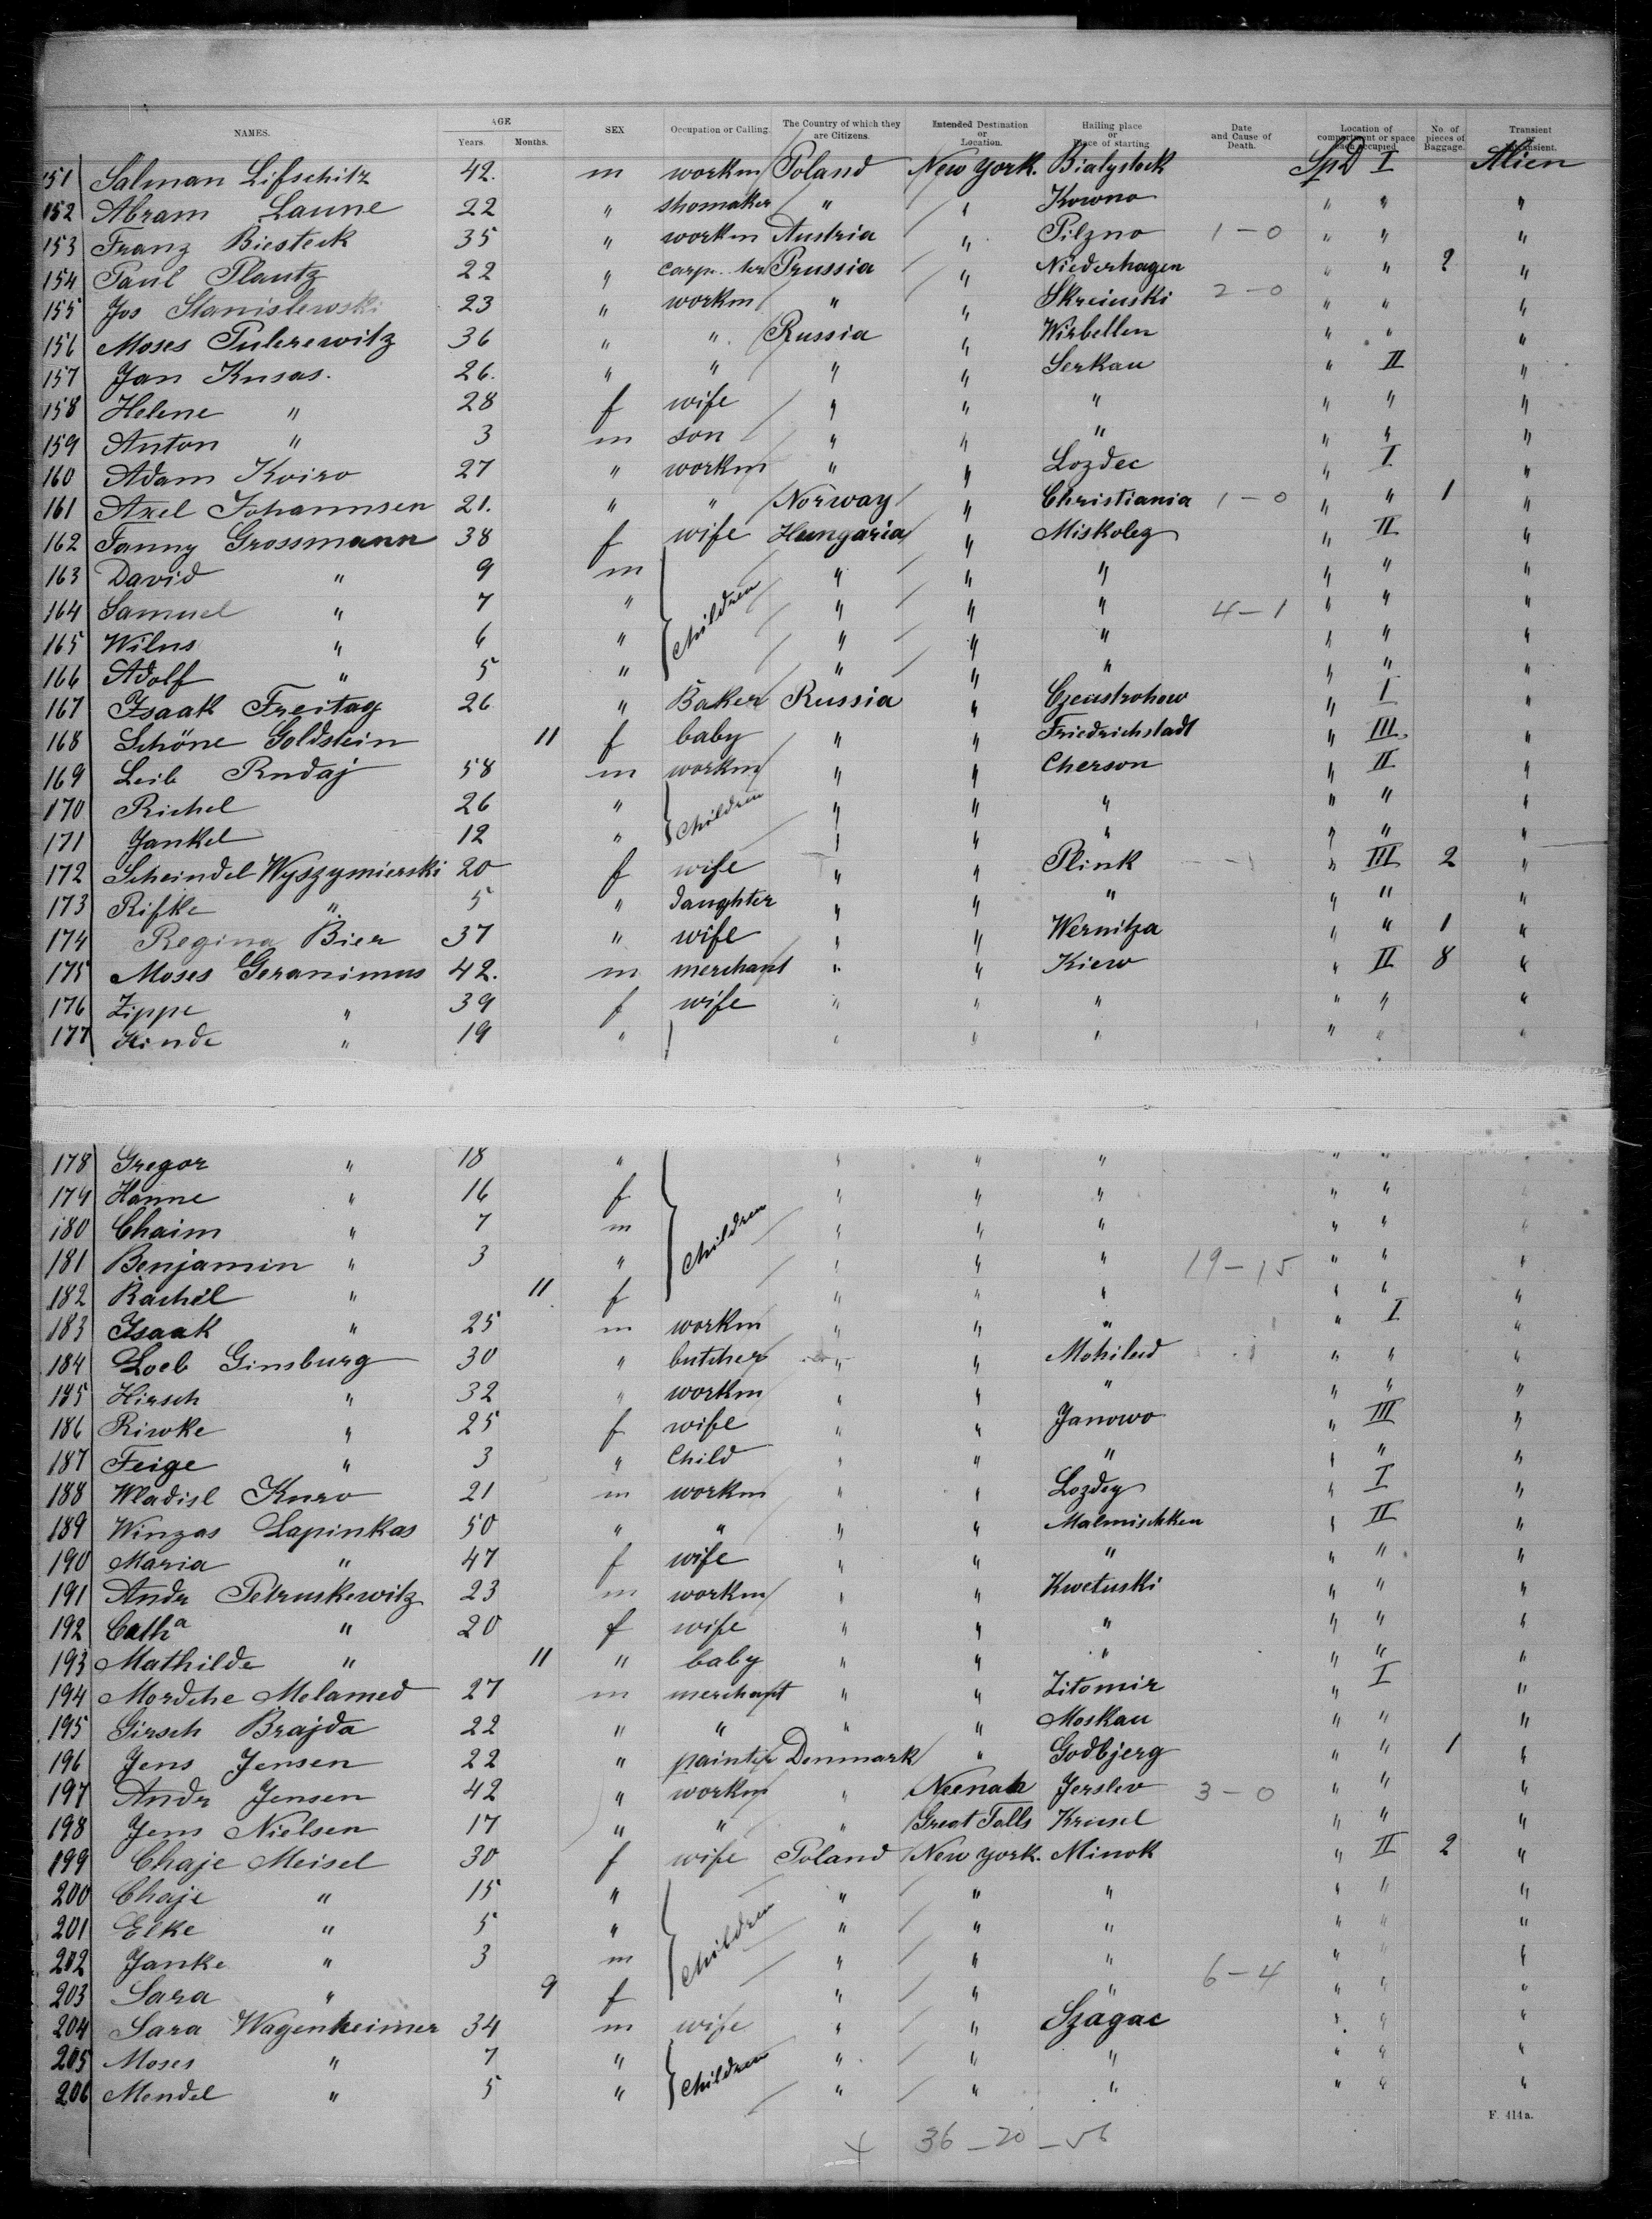 NAMES. AGE Years. Months. SEX Occupation or Calling. The Country of which they are Citizens. Intended Destination or Location. Hailing place or Place of starting Date and Cause of Death. Location of compartment or space each occupied No. of pieces of Baggage. Transient or
151 Salman Lifschitz 42. m workm Poland New York. Bialystock SpD I Alien
152 Abram Laune 22 " shomaker " " Kowno " " "
153 Franz Biesteck 35 " workm Austria " Pilzno 1-0 " " "
154 Paul Plautz 22 " Prussia " Niederhagen " " 2 "
155 Jos Stanislewski 23 " workm " " Skreinski 2-0 " " "
156 Moses Pulerewitz 36 " " Russia " Wirbellen " " "
157 Jan Knsas. 26. " " " " Serkau " II "
158 Helene " 28 f wife " " " " " "
159 Anton " 3 m son " " " " " "
160 Adam Koiro 27 " workm " " Lozdec " I "
161 Axel Johannsen 21. " " Norway " Christiania 1-0 " " 1 "
162 Fanny Grossmann 38 f wife Hungaria " Miskolez " II "
163 David " 9 m Children " " " " " "
164 Samuel " 7 " " " " 4-1 " " "
165 Wilns " 6 " " " " " " "
166 Adolf " 5 " " " " " " "
167 Isaak Freitag 26 " Baker Russia " Czenstrohow " I "
168 Schöne Goldstein 11 f baby " " Friedrichstadt " III. "
169 Leib Rndaj 58 m workm " " Cherson " II "
170 Richel 26 " Children " " " " " "
171 Jankel 12 " " " " " " "
172 Scheindel Wyszymierski 20 f wife " " Plink " III 2 "
173 Rifke " 5 " daughter " " " " " "
174 Regina Bier 37 " wife " " Wernitza " " 1 "
175 Moses Geranimus 42. m merchant " " Kiew " II 8 "
176 Zippe " 39 f wife " " " " " "
177 Hinde " 19 " " " " " " "
178 Gregor " 18 " " " " " " "
179 Hanne " 16 f " " " " " "
180 Chaim " 7 m Children " " " " " "
181 Benjamin " 3 " " " " 19-15 " " "
182 Rachel " 11 f " " " " " "
183 Isaak " 25 m workm " " " " I "
184 Loeb Ginsburg 30 " butcher " " Mohilud " " "
185 Hirsch " 32 " workm " " " " " "
186 Riwke " 25 f wife " " Janowo " III "
187 Feige " 3 " Child " " " " " "
188 Wladisl Knro 21 m workm " " Lozdey " I "
189 Winzas Lapinkas 50 " " " " Malmischken " II "
190 Maria " 47 f wife " " " " " "
191 Andr Petruskewitz 23 m workm " " Kwetuski " " "
192 Cath^a " 20 f wife " " " " " "
193 Mathilde " 11 " baby " " " " " "
194 Mordche Melamed 27 m merchant " " Zitomir " I "
195 Girsch Brajda 22 " " " " Moskau " " "
196 Jens Jensen 22 " painter Denmark " Godbjerg " " 1 "
197 Andr Jensen 42 " workm " Neenah Jerslev 3-0 " " "
198 Jens Nielsen 17 " " " Great Falls Kreusel " " "
199 Chaje Meisel 30 f wife Poland New York. Minok " II 2 "
200 Chaje " 15 " Children " " " " " "
201 Elke " 5 " " " " " " "
202 Janke " 3 m " " " " " "
203 Sara " 9 f " " " 6-4 " " "
204 Sara Wagenheimer 34 m wife " " Szagac " " "
205 Moses " 7 " Children " " " " " "
206 Mendel " 5 " " " " " " "
F. 414a.
36-20-56